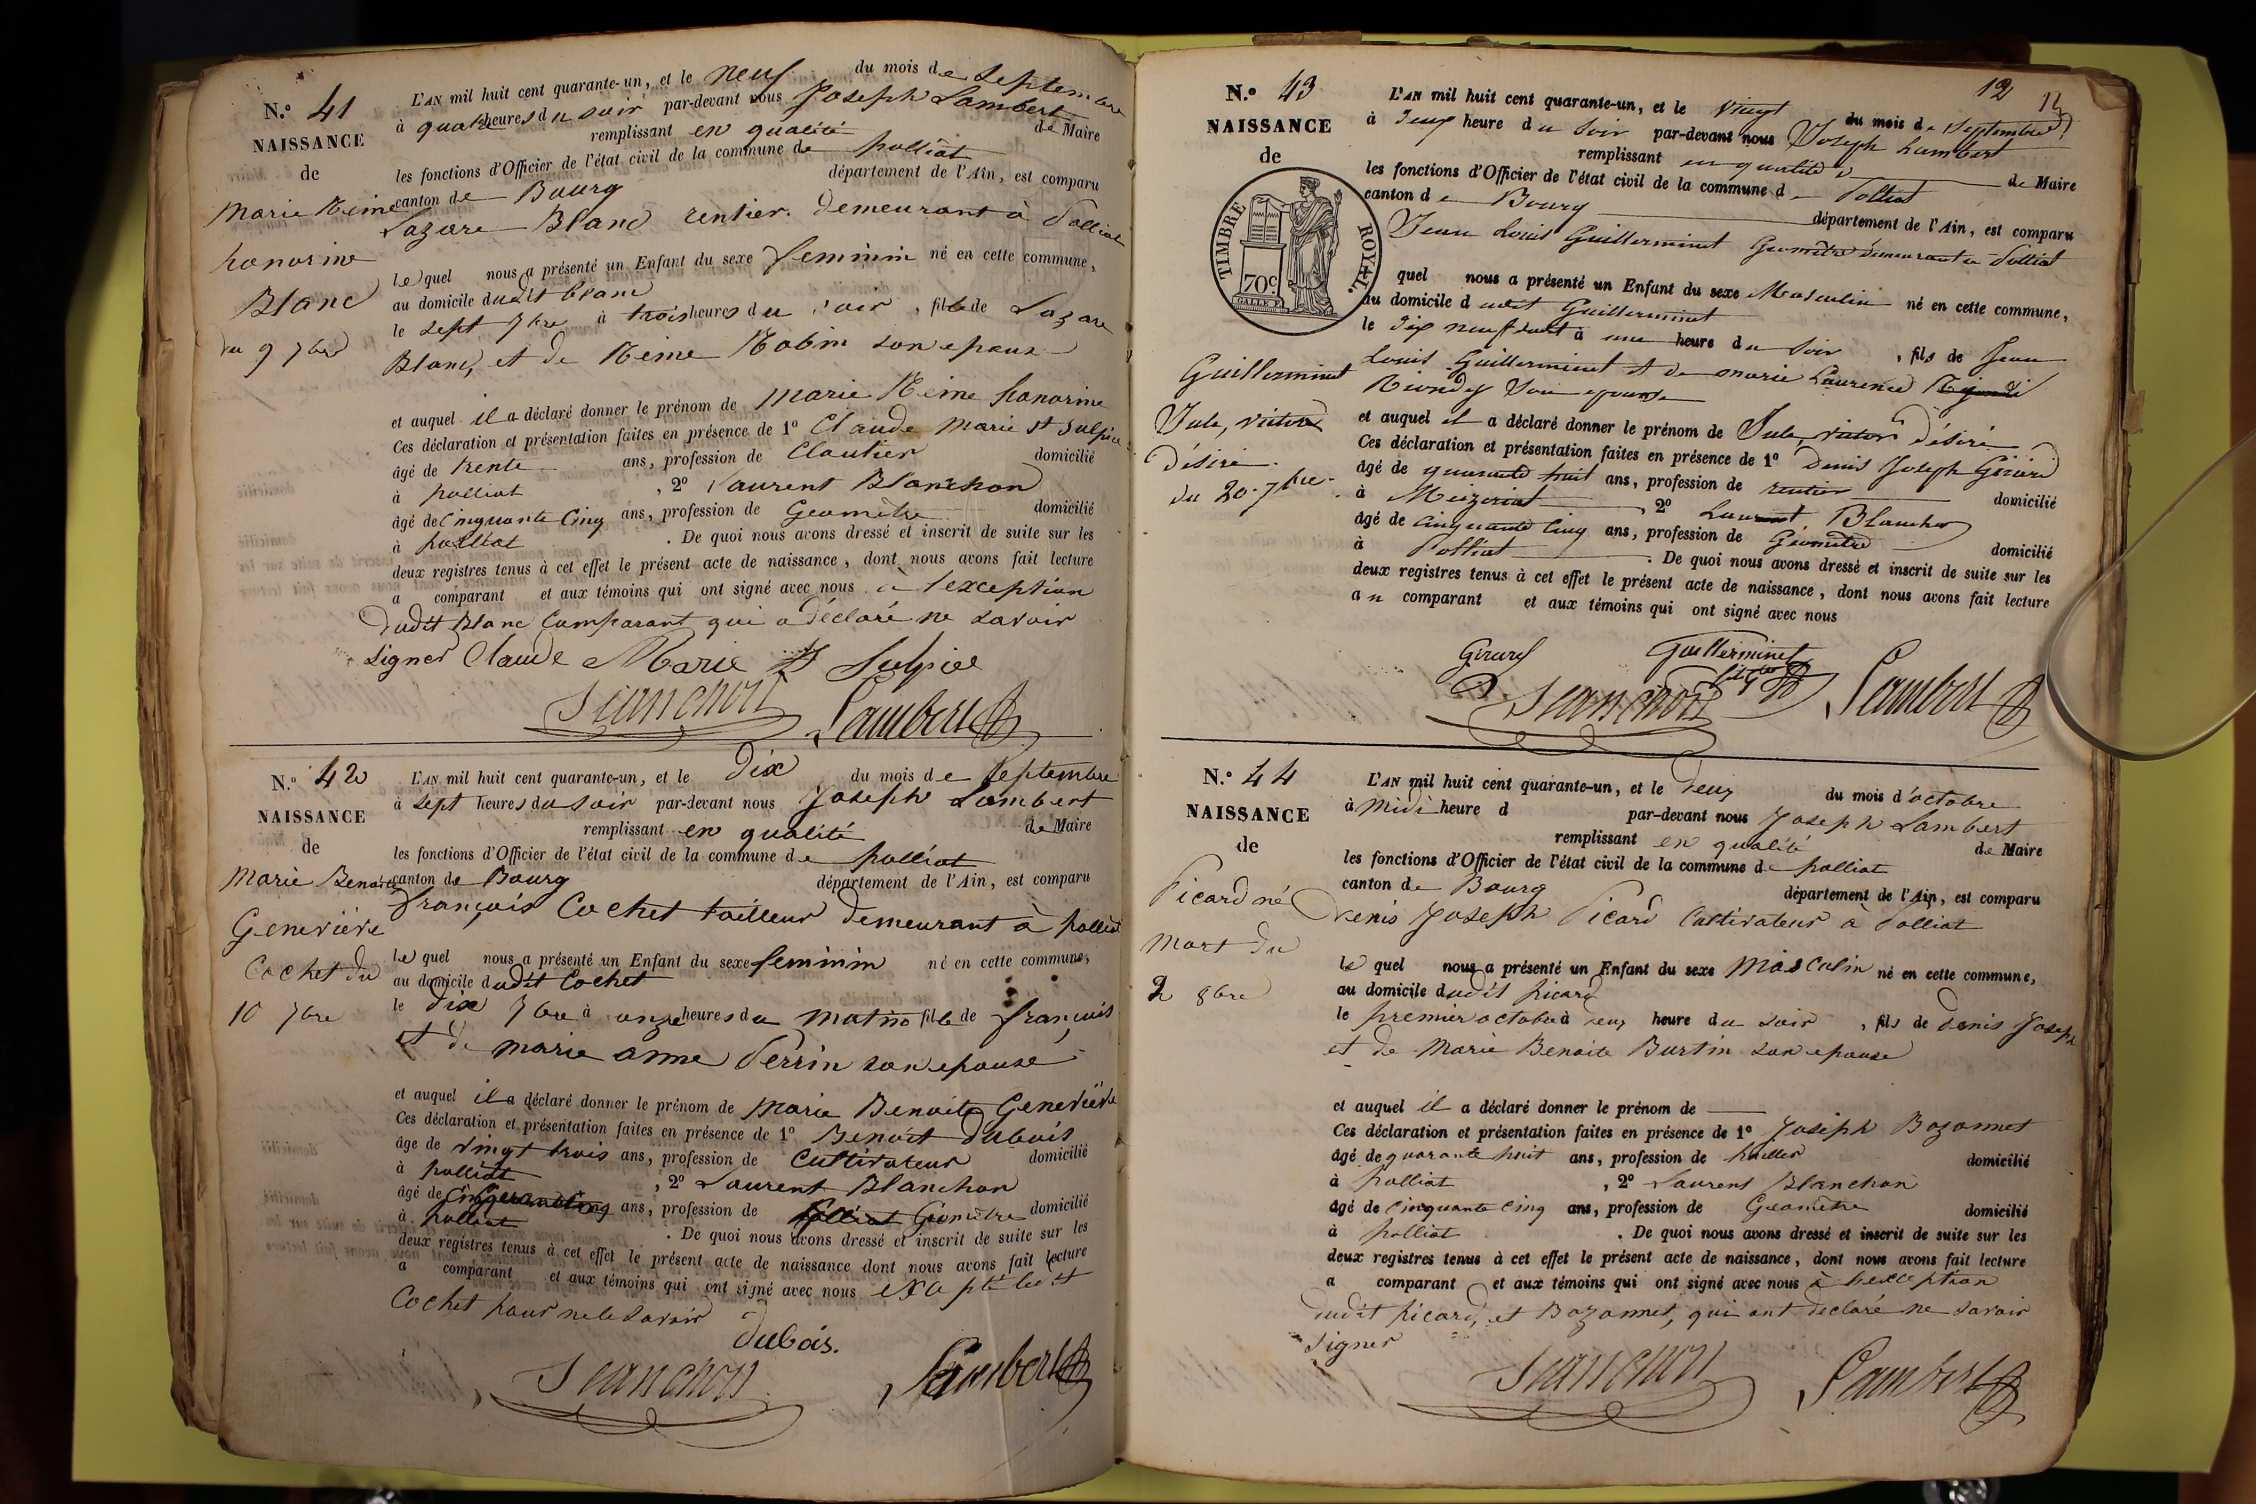 N.º 41
NAISSANCE
de
Marie Reine
honorine
Blanc
du 9 7bre
L'AN mil huit cent quarante-un, et le neuf du mois de Septembre
à quatre heures du soir par-devant nous Joseph Lambert
remplissant en qualité de Maire
les fonctions d'Officier de l'état civil de la commune de polliat
canton de Bourg département de l'Ain, est comparu
Lazare Blanc rentier demeurant à Polliat
lequel nous a présenté un Enfant du sexe feminin né en cette commune,
au domicile dudit blanc
le sept 7bre à trois heures du soir, fille de Lazare
Blanc, et de Reine Robin son epouse
et auquel il a déclaré donner le prénom de Marie Reine honorine
Ces déclaration et présentation faites en présence de 1º Claude Marie St Sulpice
âgé de trente ans, profession de Cloutier domicilié
à polliat, 2º Laurent Blanchon
âgé de Cinquante Cinq ans, profession de Geometre domicilié
à polliat. De quoi nous avons dressé et inscrit de suite sur les
deux registres tenus à cet effet le présent acte de naissance, dont nous avons fait lecture
a comparant et aux témoins qui ont signé avec nous à l'exception
dudit Blanc Comparant qui a déclaré ne savoir
signer Claude Marie St Sulpice
Blanchon Lambert
N.º 42
NAISSANCE
de
Marie Benoite
Geneviève
Cochet du
10 7bre
L'AN mil huit cent quarante-un, et le Dix du mois de Septembre
à sept heures du soir par-devant nous Joseph Lambert
remplissant en qualité de Maire
les fonctions d'Officier de l'état civil de la commune de polliat
canton de Bourg département de l'Ain, est comparu
françois Cochet tailleur demeurant à polliat
lequel nous a présenté un Enfant du sexe feminin né en cette commune,
au domicile dudit Cochet
le Dix 7bre à onze heures du matin fille de françois
et de marie anne Perrin son epouse
et auquel il a déclaré donner le prénom de Marie Benoite Geneviève
Ces déclaration et présentation faites en présence de 1º Benoit dubois
âgé de vingt trois ans, profession de Cultivateur domicilié
à polliat, 2º Laurent Blanchon
âgé de Cinquante Cinq ans, profession de Géomètre domicilié
à polliat. De quoi nous avons dressé et inscrit de suite sur les
deux registres tenus à cet effet le présent acte de naissance dont nous avons fait lecture
a comparant et aux témoins qui ont signé avec nous
Cochet pour ne le savoir
Dubois.
Blanchon Lambert
12
N.º 43
NAISSANCE
de
TIMBRE ROYAL.
70c
Guillerminet
Jule, victor
Désiré
du 20 7bre
L'AN mil huit cent quarante-un, et le vingt du mois de Septembre
à Deux heure du Soir par-devant nous Joseph Lambert
remplissant en qualité de Maire
les fonctions d'Officier de l'état civil de la commune de Polliat
canton de Bourg département de l'Ain, est comparu
Jean Louis Guillerminet Géomètre demeurant a Polliat
quel nous a présenté un Enfant du sexe Masculin né en cette commune,
au domicile dudit Guillerminet
le Dix neuf dudit à une heure du Soir, fils de Jean
Louis Guillerminet et de marie Laurence
Riondy Son epouse
et auquel il a déclaré donner le prénom de Jule, victor désiré
Ces déclaration et présentation faites en présence de 1º Denis Joseph Girard
âgé de quarante huit ans, profession de rentier domicilié
à Mézériat, 2º Laurent Blanchon
âgé de cinquante Cinq ans, profession de Géomètre domicilié
à Polliat. De quoi nous avons dressé et inscrit de suite sur les
deux registres tenus à cet effet le présent acte de naissance, dont nous avons fait lecture
au comparant et aux témoins qui ont signé avec nous
Girard Guillerminet
Blanchon Lambert
N.º 44
NAISSANCE
de
Picard né
Mort du
2 8bre
L'AN mil huit cent quarante-un, et le deux du mois d'octobre
à Midi heure d par-devant nous Joseph Lambert
remplissant en qualité de Maire
les fonctions d'Officier de l'état civil de la commune de polliat
canton de Bourg département de l'Ain, est comparu
Denis Joseph Picard Cultivateur à Polliat
le quel nous a présenté un Enfant du sexe Masculin né en cette commune,
au domicile dudit picard
le premier octobre à deux heure du soir, fils de denis Joseph
et de Marie Benoite Burtin son epouse
et auquel il a déclaré donner le prénom de
Ces déclaration et présentation faites en présence de 1º Joseph Bozonnet
âgé de quarante huit ans, profession de domicilié
à Polliat, 2º Laurent Blanchon
âgé de Cinquante Cinq ans, profession de Geometre domicilié
à polliat. De quoi nous avons dressé et inscrit de suite sur les
deux registres tenus à cet effet le présent acte de naissance, dont nous avons fait lecture
a comparant et aux témoins qui ont signé avec nous à l'exception
dudit picard, et Bozonnet, qui ont déclaré ne savoir
signer
Blanchon Lambert